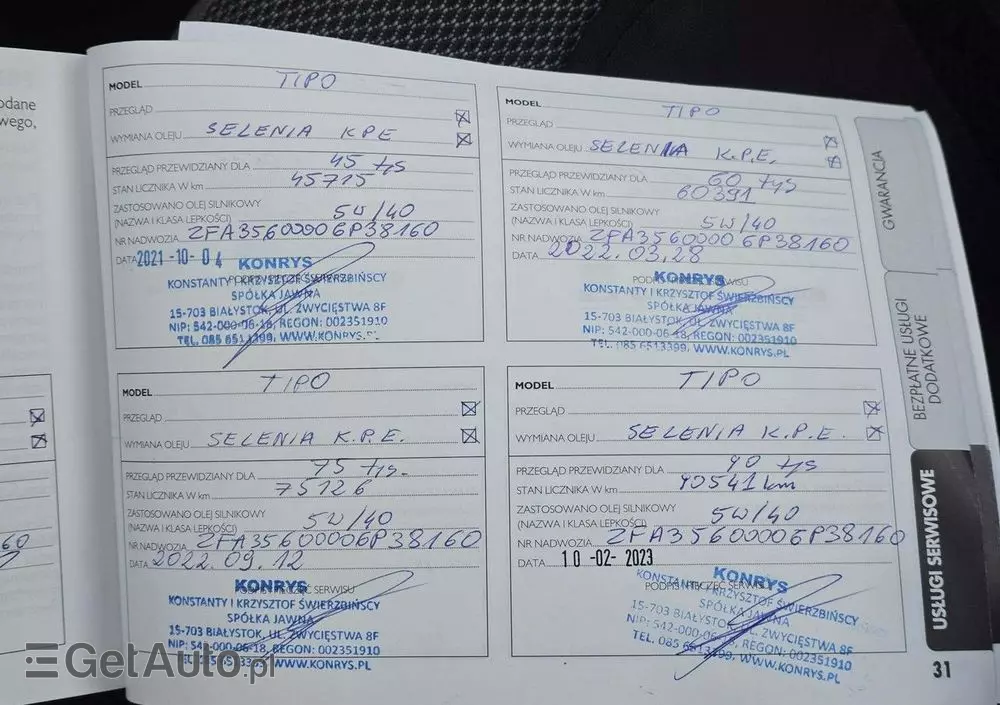 odane
wego,
60
MODEL TIPO
PRZEGLĄD
WYMIANA OLEJU SELENIA KPE
PRZEGLĄD PRZEWIDZIANY DLA 45 tys
STAN LICZNIKA W km 45715
ZASTOSOWANO OLEJ SILNIKOWY
(NAZWA I KLASA LEPKOŚCI) 5W/40
NR NADWOZIA ZFA35600006P38160
DATA 2021-10-04
KONRYS
KONSTANTY I KRZYSZTOF ŚWIERZBIŃSCY
SPÓŁKA JAWNA
15-703 BIAŁYSTOK, UL. ZWYCIĘSTWA 8F
NIP: 542-000-06-18, REGON: 002351910
TEL. 085 6513399, WWW.KONRYS.PL
MODEL TIPO
PRZEGLĄD
WYMIANA OLEJU SELENIA K.P.E.
PRZEGLĄD PRZEWIDZIANY DLA 60 tys
STAN LICZNIKA W km 60391
ZASTOSOWANO OLEJ SILNIKOWY
(NAZWA I KLASA LEPKOŚCI) 5W/40
NR NADWOZIA ZFA35600006P38160
DATA 2022.03.28
KONRYS
KONSTANTY I KRZYSZTOF ŚWIERZBIŃSCY
SPÓŁKA JAWNA
15-703 BIAŁYSTOK, UL. ZWYCIĘSTWA 8F
NIP: 542-000-06-18, REGON: 002351910
TEL. 085 6513399, WWW.KONRYS.PL
MODEL TIPO
PRZEGLĄD
WYMIANA OLEJU SELENIA K.P.E.
PRZEGLĄD PRZEWIDZIANY DLA 75 tys.
STAN LICZNIKA W km 75126
ZASTOSOWANO OLEJ SILNIKOWY
(NAZWA I KLASA LEPKOŚCI) 5W/40
NR NADWOZIA ZFA35600006P38160
DATA 2022.09.12
PODPIS I PIECZĘĆ SERWISU
KONRYS
KONSTANTY I KRZYSZTOF ŚWIERZBIŃSCY
SPÓŁKA JAWNA
15-703 BIAŁYSTOK, UL. ZWYCIĘSTWA 8F
NIP: 542-000-06-18, REGON: 002351910
WWW.KONRYS.PL
MODEL TIPO
PRZEGLĄD
WYMIANA OLEJU SELENIA K.P.E.
PRZEGLĄD PRZEWIDZIANY DLA 90 tys
STAN LICZNIKA W km 90541 km
ZASTOSOWANO OLEJ SILNIKOWY
(NAZWA I KLASA LEPKOŚCI) 5W/40
NR NADWOZIA ZFA35600006P38160
DATA 10-02-2023
PODPIS I PIECZĘĆ SERWISU
KONRYS
KONSTANTY I KRZYSZTOF ŚWIERZBIŃSCY
SPÓŁKA JAWNA
15-703 BIAŁYSTOK, UL. ZWYCIĘSTWA 8F
NIP: 542-000-06-18, REGON: 002351910
TEL. 085 6513399, WWW.KONRYS.PL
GWARANCJA
BEZPŁATNE USŁUGI
DODATKOWE
USŁUGI SERWISOWE
31
GetAuto.pl